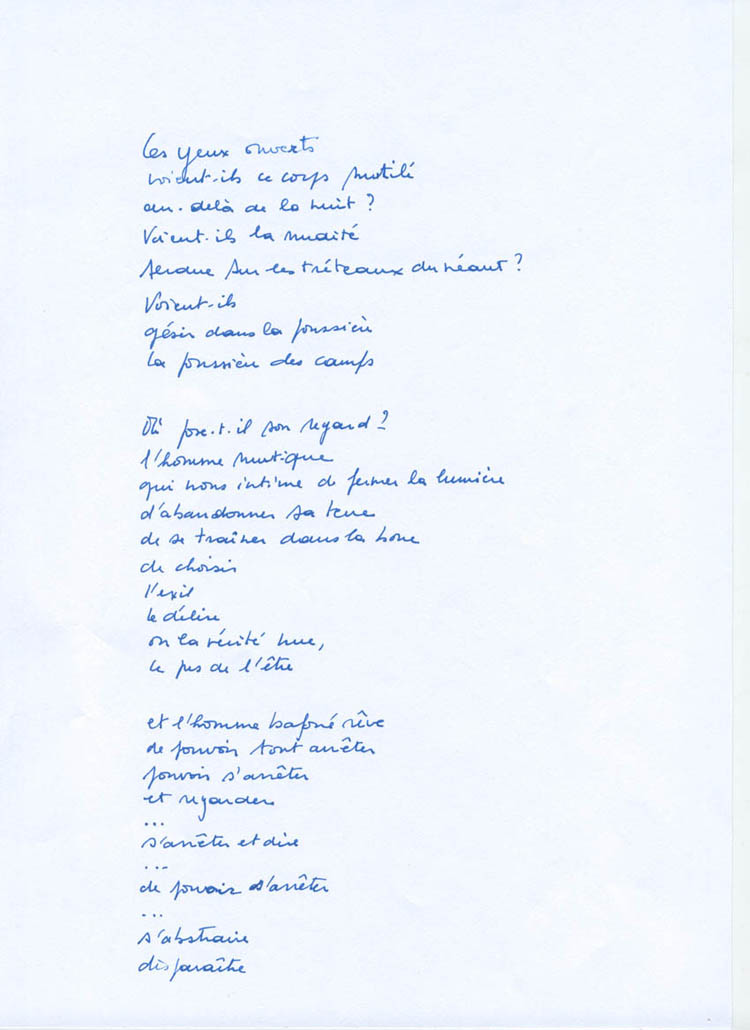 Ces yeux ouverts
voient-ils ce corps mutilé
au-delà de la nuit ?
Voient-ils la nudité
tendue sur les tréteaux du néant ?
Voient-ils
gésir dans la poussière
la poussière des camps
Où pose-t-il son regard ?
l'homme
qui nous intime de fermer la lumière
d'abandonner sa terre
de se traîner dans la boue
de choisir
l'exil
le délire
ou la vérité nue,
le pus de l'être
et l'homme bafoué rêve
de pouvoir tout arrêter
pouvoir s'arrêter
et regarder
...
s'arrêter et dire
...
de pouvoir s'arrêter
...
s'abstraire
disparaître